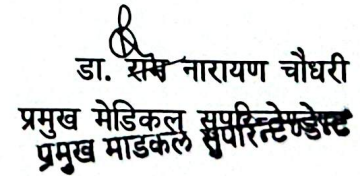 डा. राम नारायण चौधरी
प्रमुख मेडिकल सुपरिन्टेण्डेण्ट
प्रमुख माडकल सुपरिन्टेण्डेण्ट